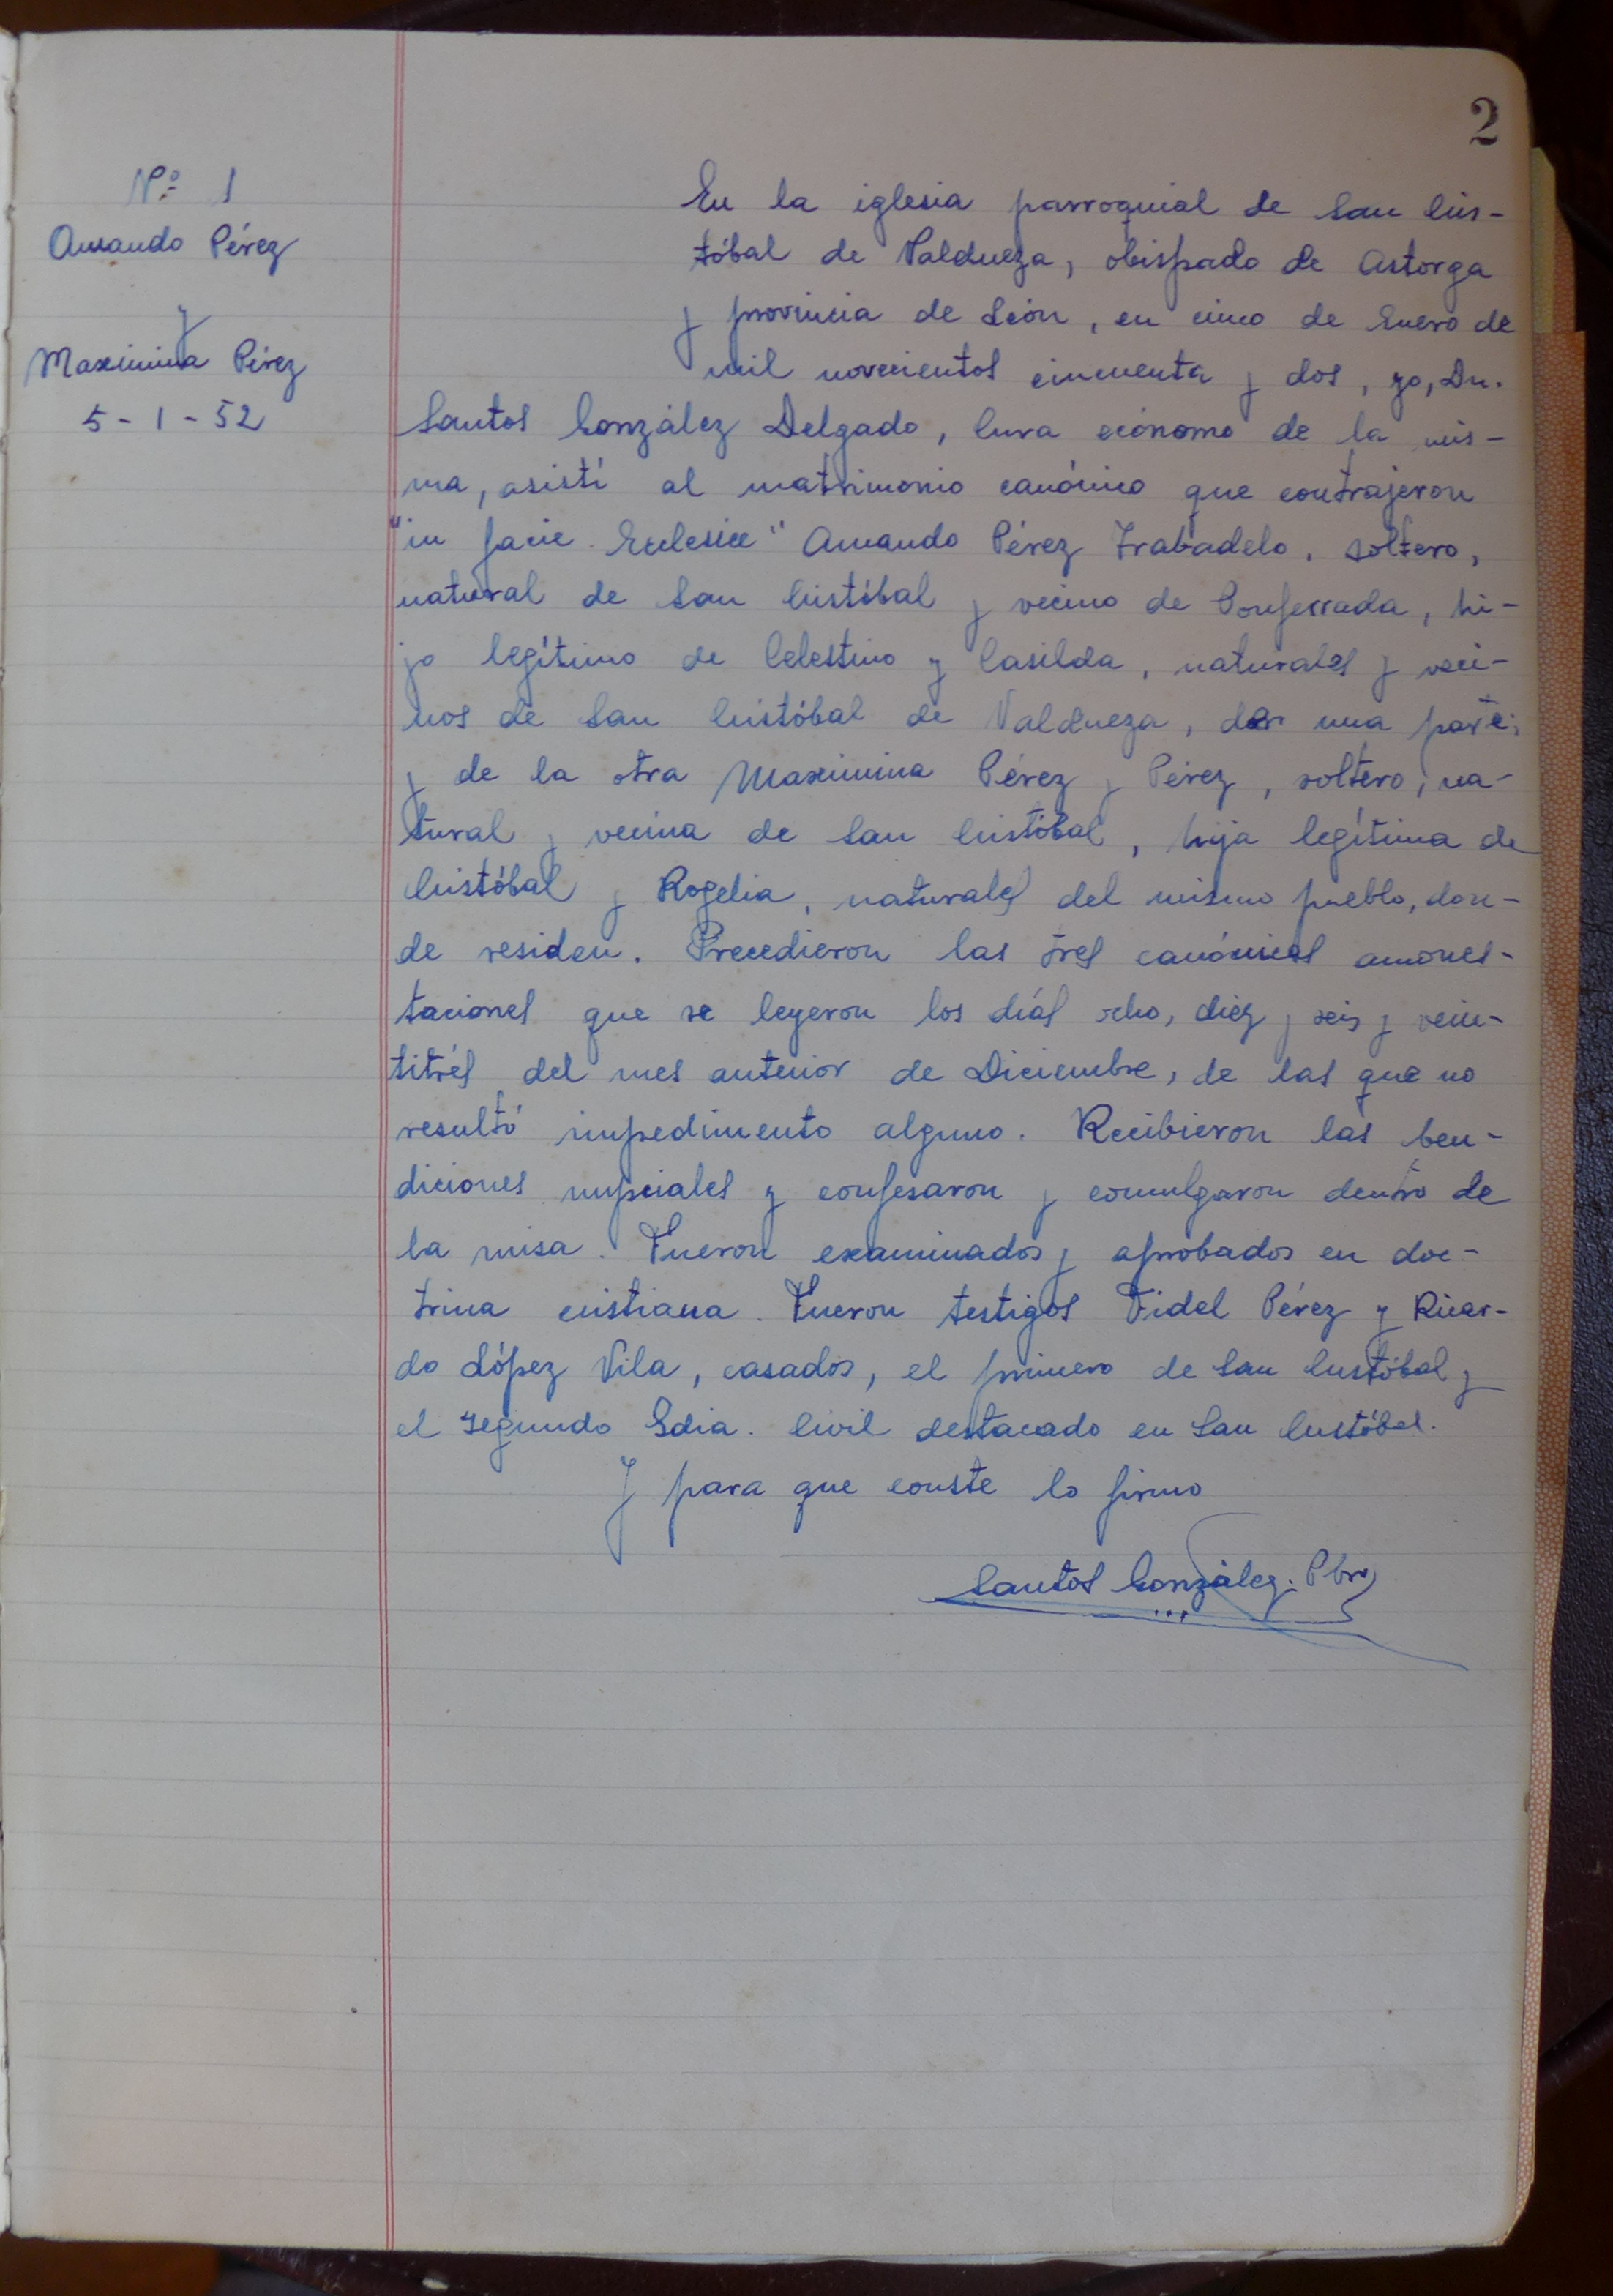 2
Nº 1
Amando Pérez
y
Maximina Pérez
5-1-52
En la iglesia parroquial de San Cris-
tóbal de Valdueza, obispado de Astorga
y provincia de León, en cinco de Enero de
mil novecientos cincuenta y dos, yo, Dn.
Santos González Delgado, Cura ecónomo de la mis-
ma, asistí al matrimonio canónico que contrajeron
"in facie Eclesiae" Amando Pérez Trabadelo, soltero,
natural de San Cristóbal y vecino de Ponferrada, hi-
jo legítimo de Celestino y Casilda, naturales y veci-
nos de San Cristóbal de Valdueza, de una parte;
y de la otra Maximina Pérez y Pérez, soltera, na-
tural y vecina de San Cristóbal, hija legítima de
Cristóbal y Rogelia, naturales del mismo pueblo, don-
de residen. Precedieron las tres canónicas amones-
taciones que se leyeron los días ocho, diez y seis y vein-
titrés del mes anterior de Diciembre, de las que no
resultó impedimento alguno. Recibieron las ben-
diciones nupciales y confesaron y comulgaron dentro de
la misa. Fueron examinados y aprobados en doc-
trina cristiana. Fueron testigos Fidel Pérez y Ricar-
do López Vila, casados, el primero de San Cristóbal y
el segundo Gdia. Civil destacado en San Cristóbal.
Y para que conste lo firmo
Santos González. Pbro